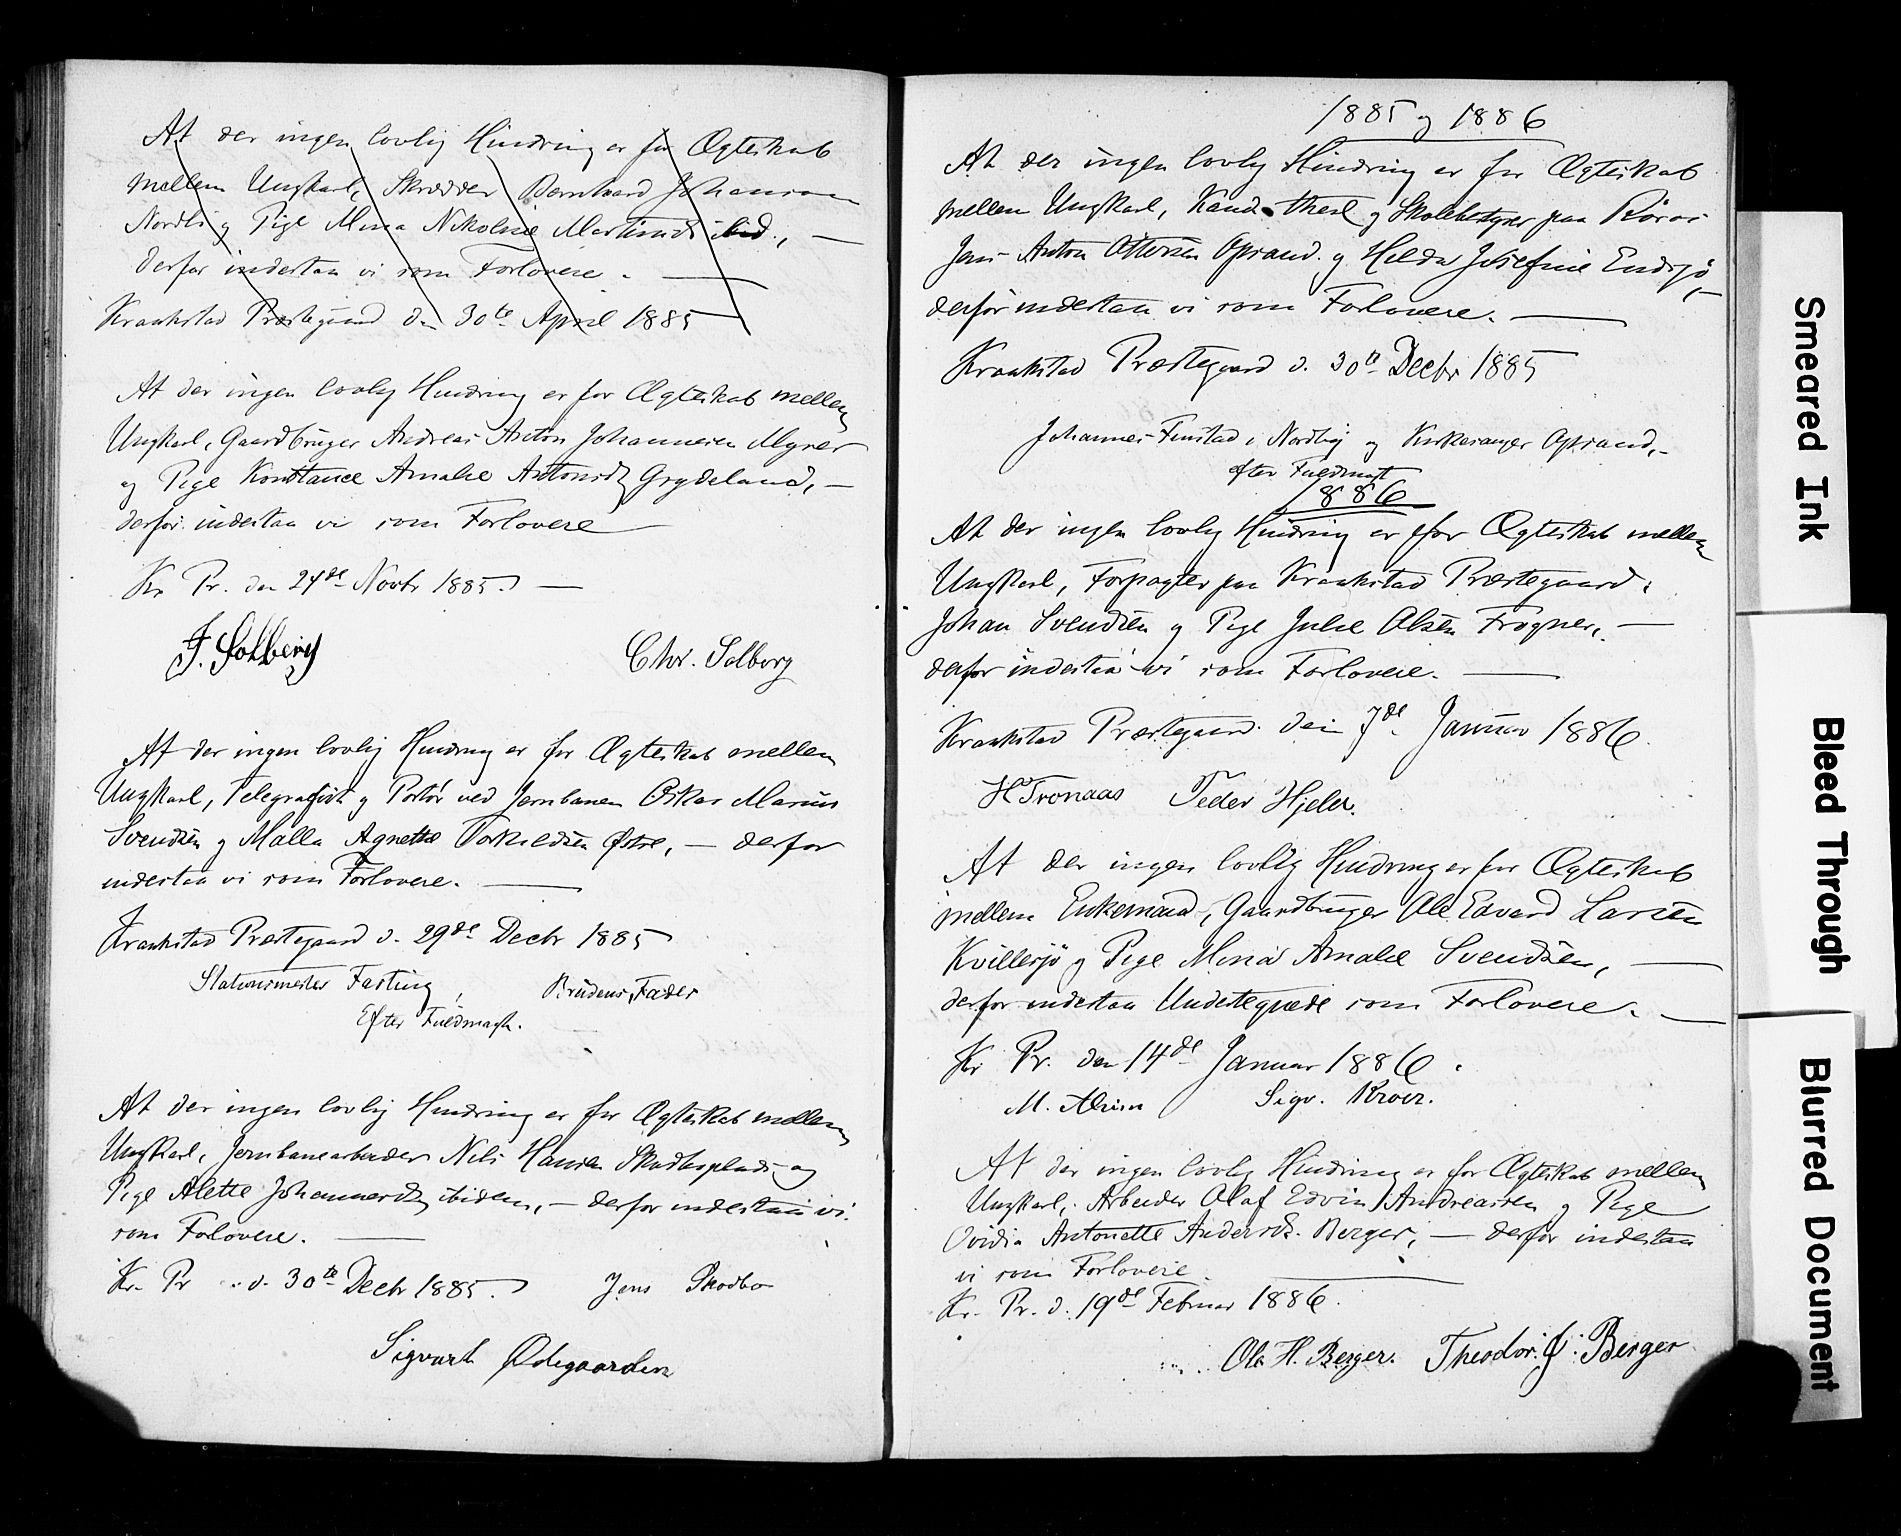 At der ingen lovlig Hindring er for Ægteskab
mellem Ungkarl, Skrædder Bernhard Johansen
Nordli og Pige Mina Nikoline Martinsd. ibid., —
derfor indestaa vi som Forlovere. —
Kraakstad Præstegaard den 30te April 1885
At der ingen lovlig Hindring er for Ægteskab mellem
Ungkarl, Gaardbruger Andreas Anton Johannesen Myrer
og Pige Konstance Amalie Antonsdt Grydeland, —
derfor indestaa vi som Forlovere —
Kr Pr. den 24de Novbr 1885. —
J. Solberg Chr. Solberg
At der ingen lovlig Hindring er for Ægteskab mellem
Ungkarl, Telegrafist og Portør ved Jernbanen Oskar Marius
Svendsen og Malla Agnette Torkildsen Østre, — derfor
indestaa vi som Forlovere. —
Kraakstad Præstegaard d. 29de Decbr 1885
Stationsmester Fasting, Brudens Fader
Efter Fuldmagt.
At der ingen lovlig Hindring er for Ægteskab mellem
Ungkarl, Jernbanearbeider Nils Hansen Skodboplads og
Pige Alette Johannesdt ibidem, — derfor indestaa vi
som Forlovere. —
Kr. Pr. d. 30te Decbr 1885. Jens Skodbo
Sigvart Ødegaarden
1885 og 1886
At der ingen lovlig Hindring er for Ægteskab
mellem Ungkarl, Kand. theol og Skolebestyrer paa Röros
Jens Anton Ottersen Opsand og Helda Josefine Endsjö,
derfor indestaa vi som Forlovere. —
Kraakstad Præstegaard d. 30te Decbr 1885
Johannes Finstad i Nordby og Kirkesanger Opsand, -
efter Fuldmagt
1886
At der ingen lovlig Hindring er for Ægteskab mellem
Ungkarl, Forpagter paa Kraakstad Præstegaard,
Johan Svendsen og Pige Julie Olsen Frogner, —
derfor indestaa vi som Forlovere. —
Kraakstad Præstegaard den 7de Januar 1886.
H Tronaas Peder Hjeler.
At der ingen lovlig Hindring er for Ægteskab
mellem Enkemand, Gaardbruger Ole Edvard Larsen
Kvillesjö og Pige Mina Amalie Svendsen, —
derfor indestaa Undertegnede som Forlovere. —
Kr Pr. den 14de Januar 1886.
M. Sigv. Kroer.
At der ingen lovlig Hindring er for Ægteskab mellem
Ungkarl, Arbeider Olaf Edvin Andreassen og Pige
Ovidia Antonette Andersdt. Berger, — derfor indestaa
vi som Forlovere. —
Kr. Pr. d. 19de Februar 1886.
Ole H. Berger. Theodor. J: Berger
Smeared Ink
Bleed Through
Blurred Document